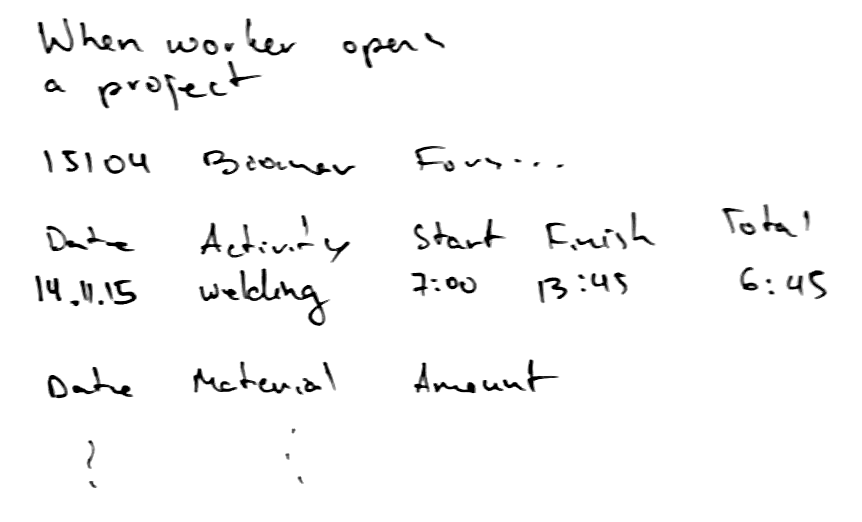 When worker opens
a project
15104 Boomer Fors...
Date Activity Start Finish Total
14.11.15 welding 7:00 13:45 6:45
Date Material Amount